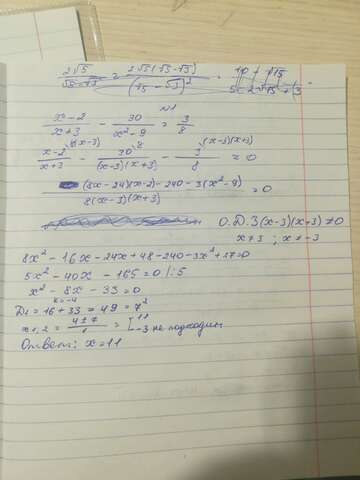 2√5/(√5-√3) = 2√5(√5-√3)/(√5-√3)² 10 + √15 / 5 - 2√15 + 3
№1
(x-2)/(x+3) - 30/(x²-9) = 3/8
(x-2)/(x+3) - 30/((x-3)(x+3)) - 3/8 = 0
((8x-24)(x-2)-240-3(x²-9))/(8(x-3)(x+3)) = 0
О.Д.З (x-3)(x+3) ≠0
x≠3; x≠-3
8x² - 16x - 24x + 48 - 240 - 3x² + 27=0
5x² - 40x - 165 = 0 |:5
x² - 8x - 33 = 0
k=-4
D₁ = 16 + 33 = 49 = 7²
x₁,₂ = (4±7)/1 = [11
-3 не подходит
Ответ: x = 11